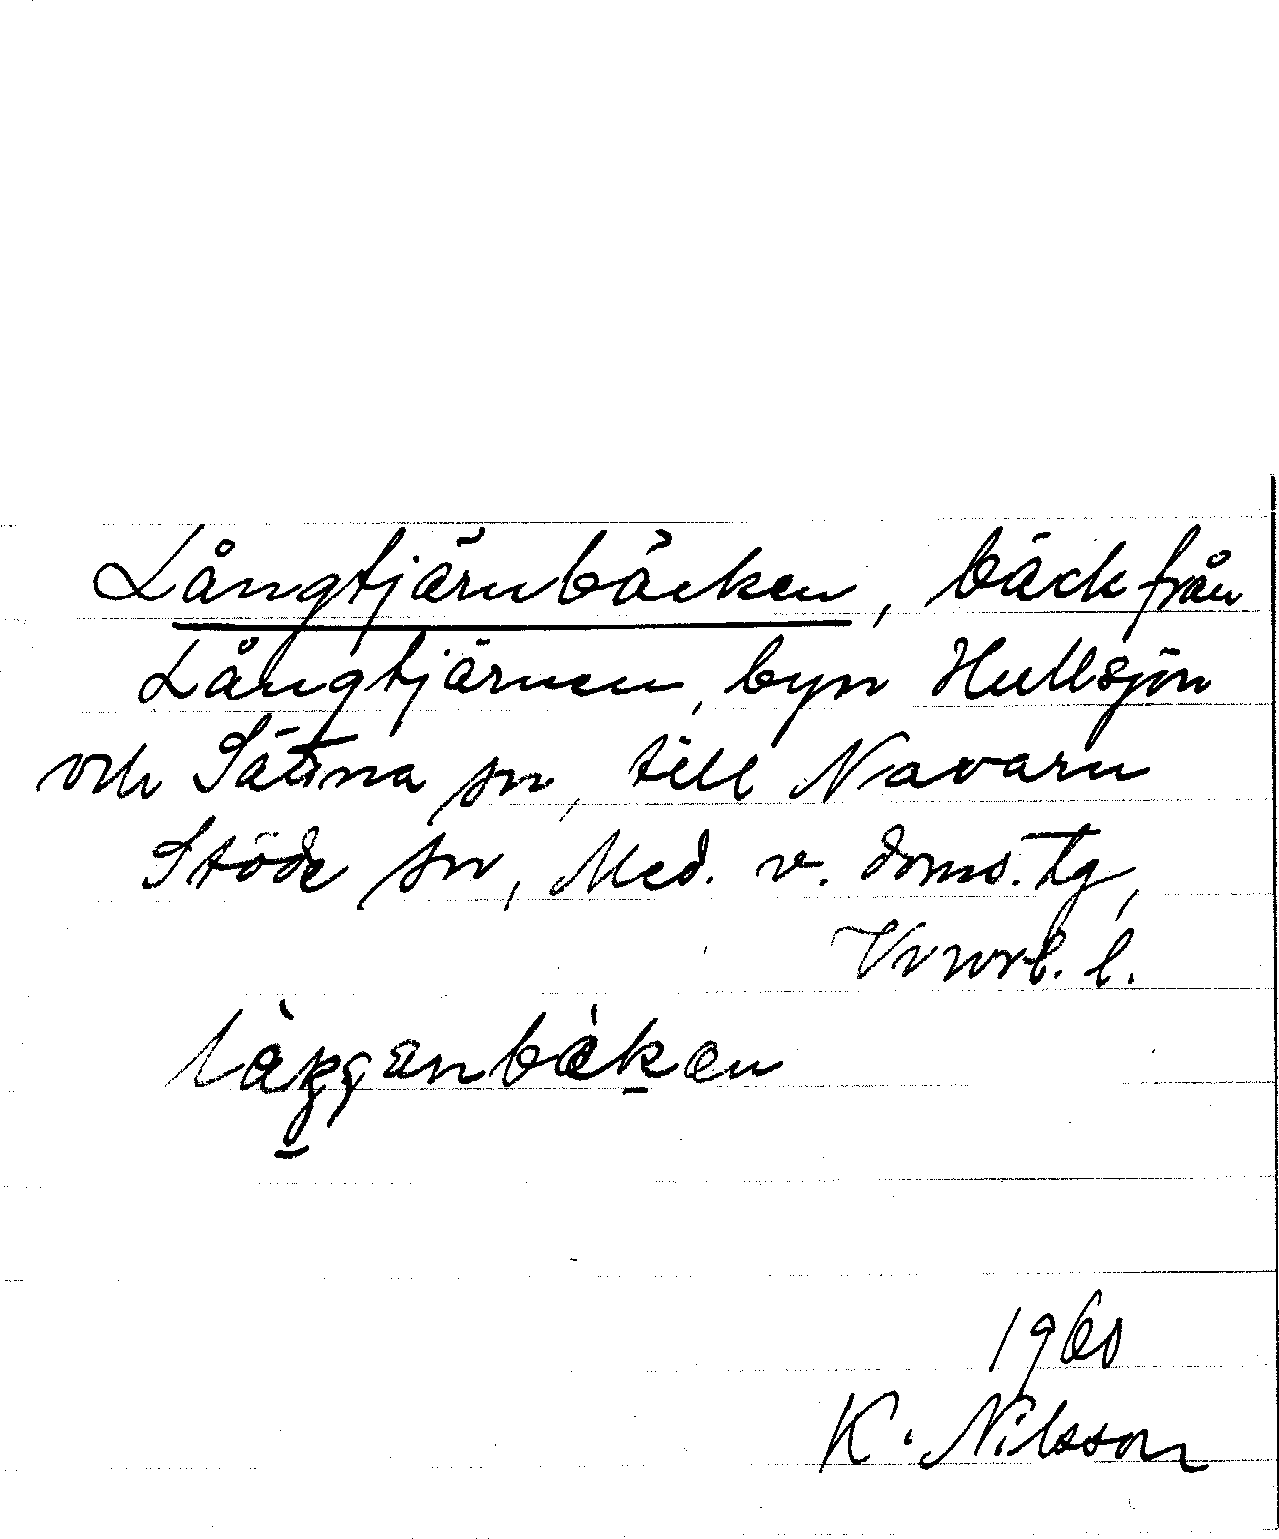 Långtjärnbäcken, bäck från
Långtjärnen, byn Hullsjön
och Sättna sn, till Navarn
Stöde sn, Med. v. doms. tg,
Vnorl. l.
1960
K. Nilsson